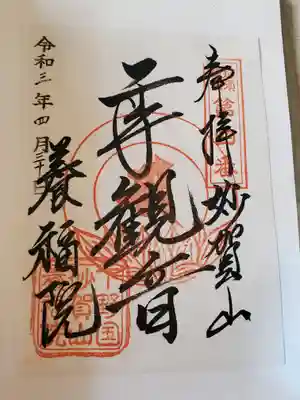 奉拝 妙賀山
千手観音
令和三年四月三十日
養福院